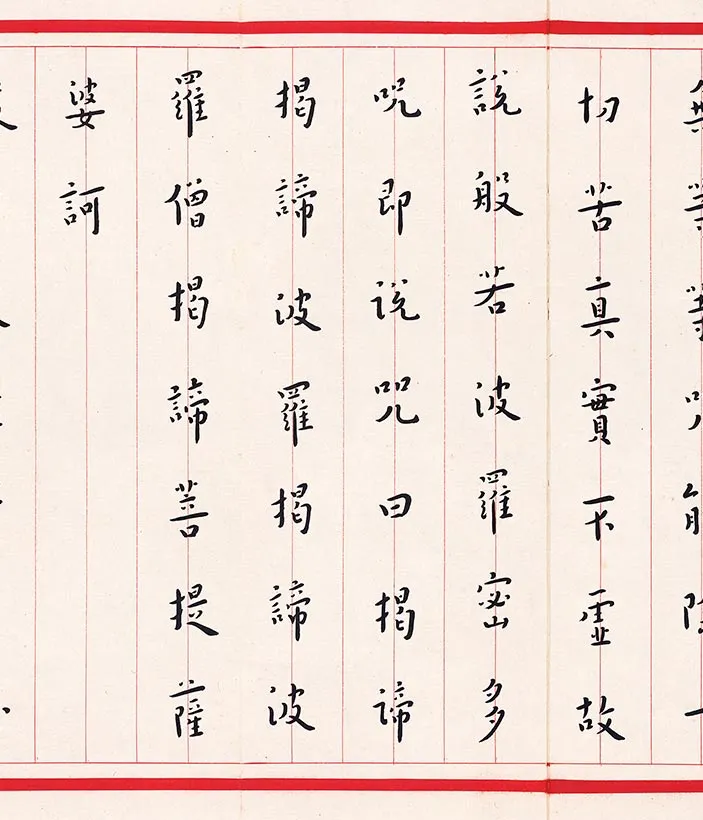 無等等呪能除一
切苦真實不虛故
說般若波羅密多
呪即說咒曰揭諦
揭諦波羅揭諦波
羅僧揭諦菩提薩
婆訶